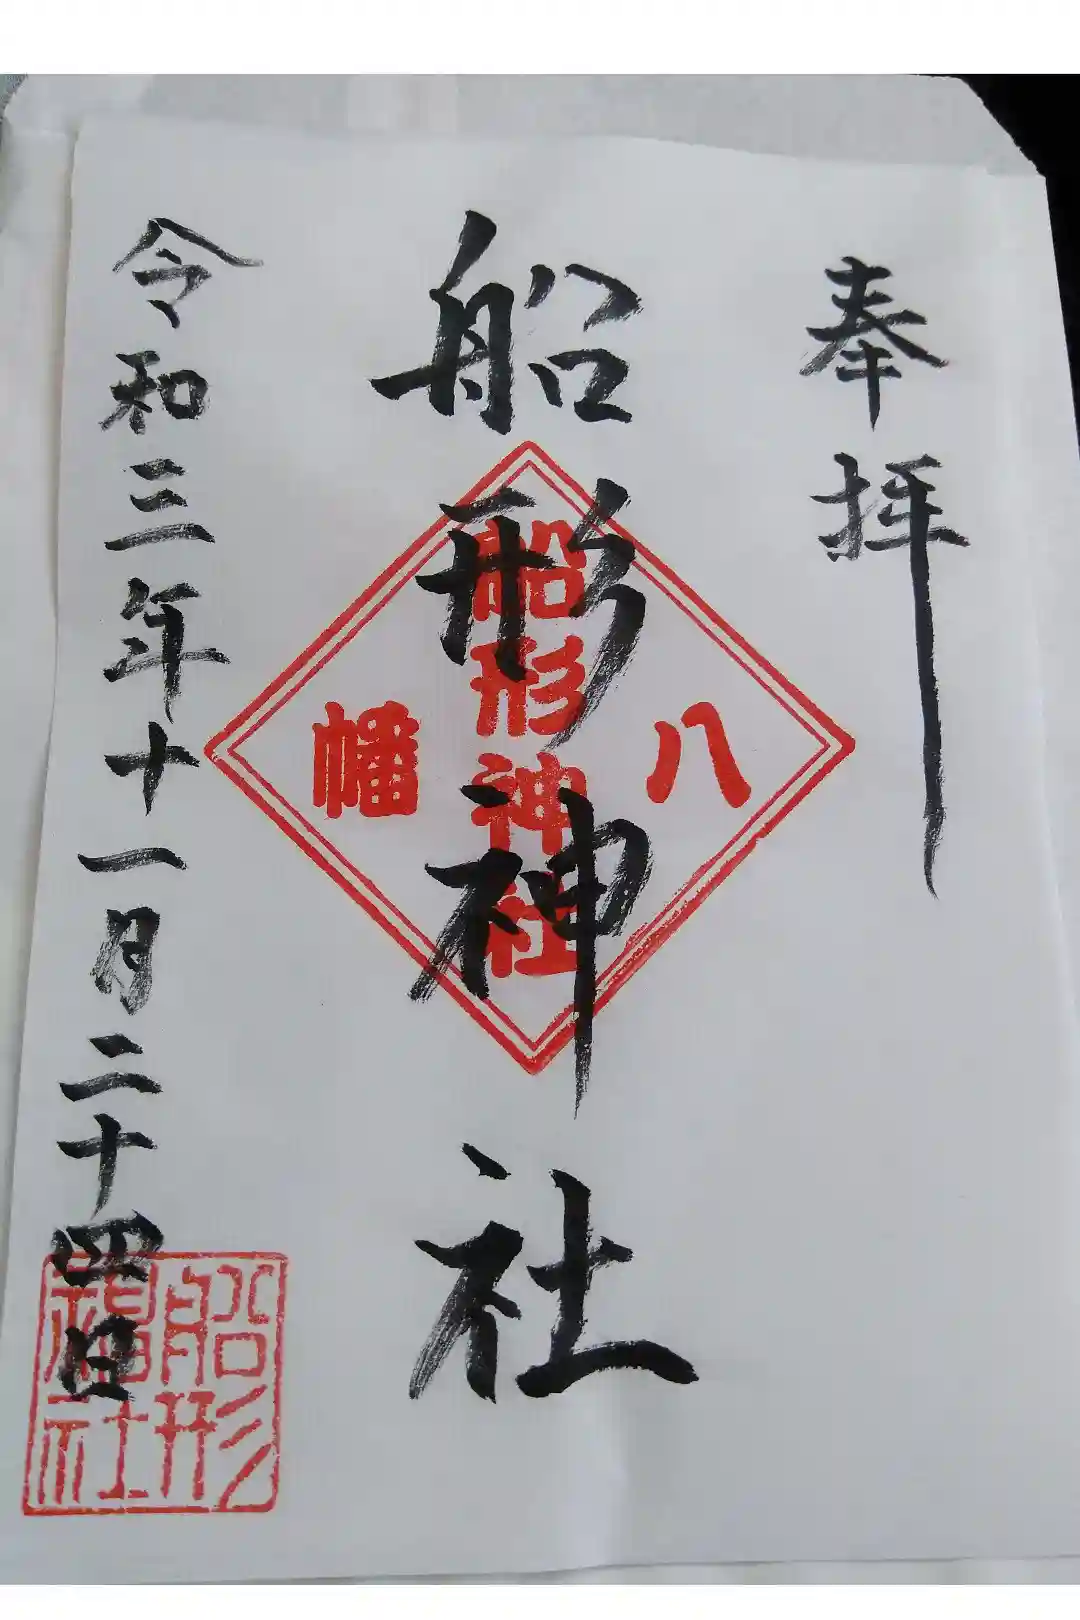 奉拝
船形神社
八
船形神社
幡
令和三年十一月二十四日
船形
社